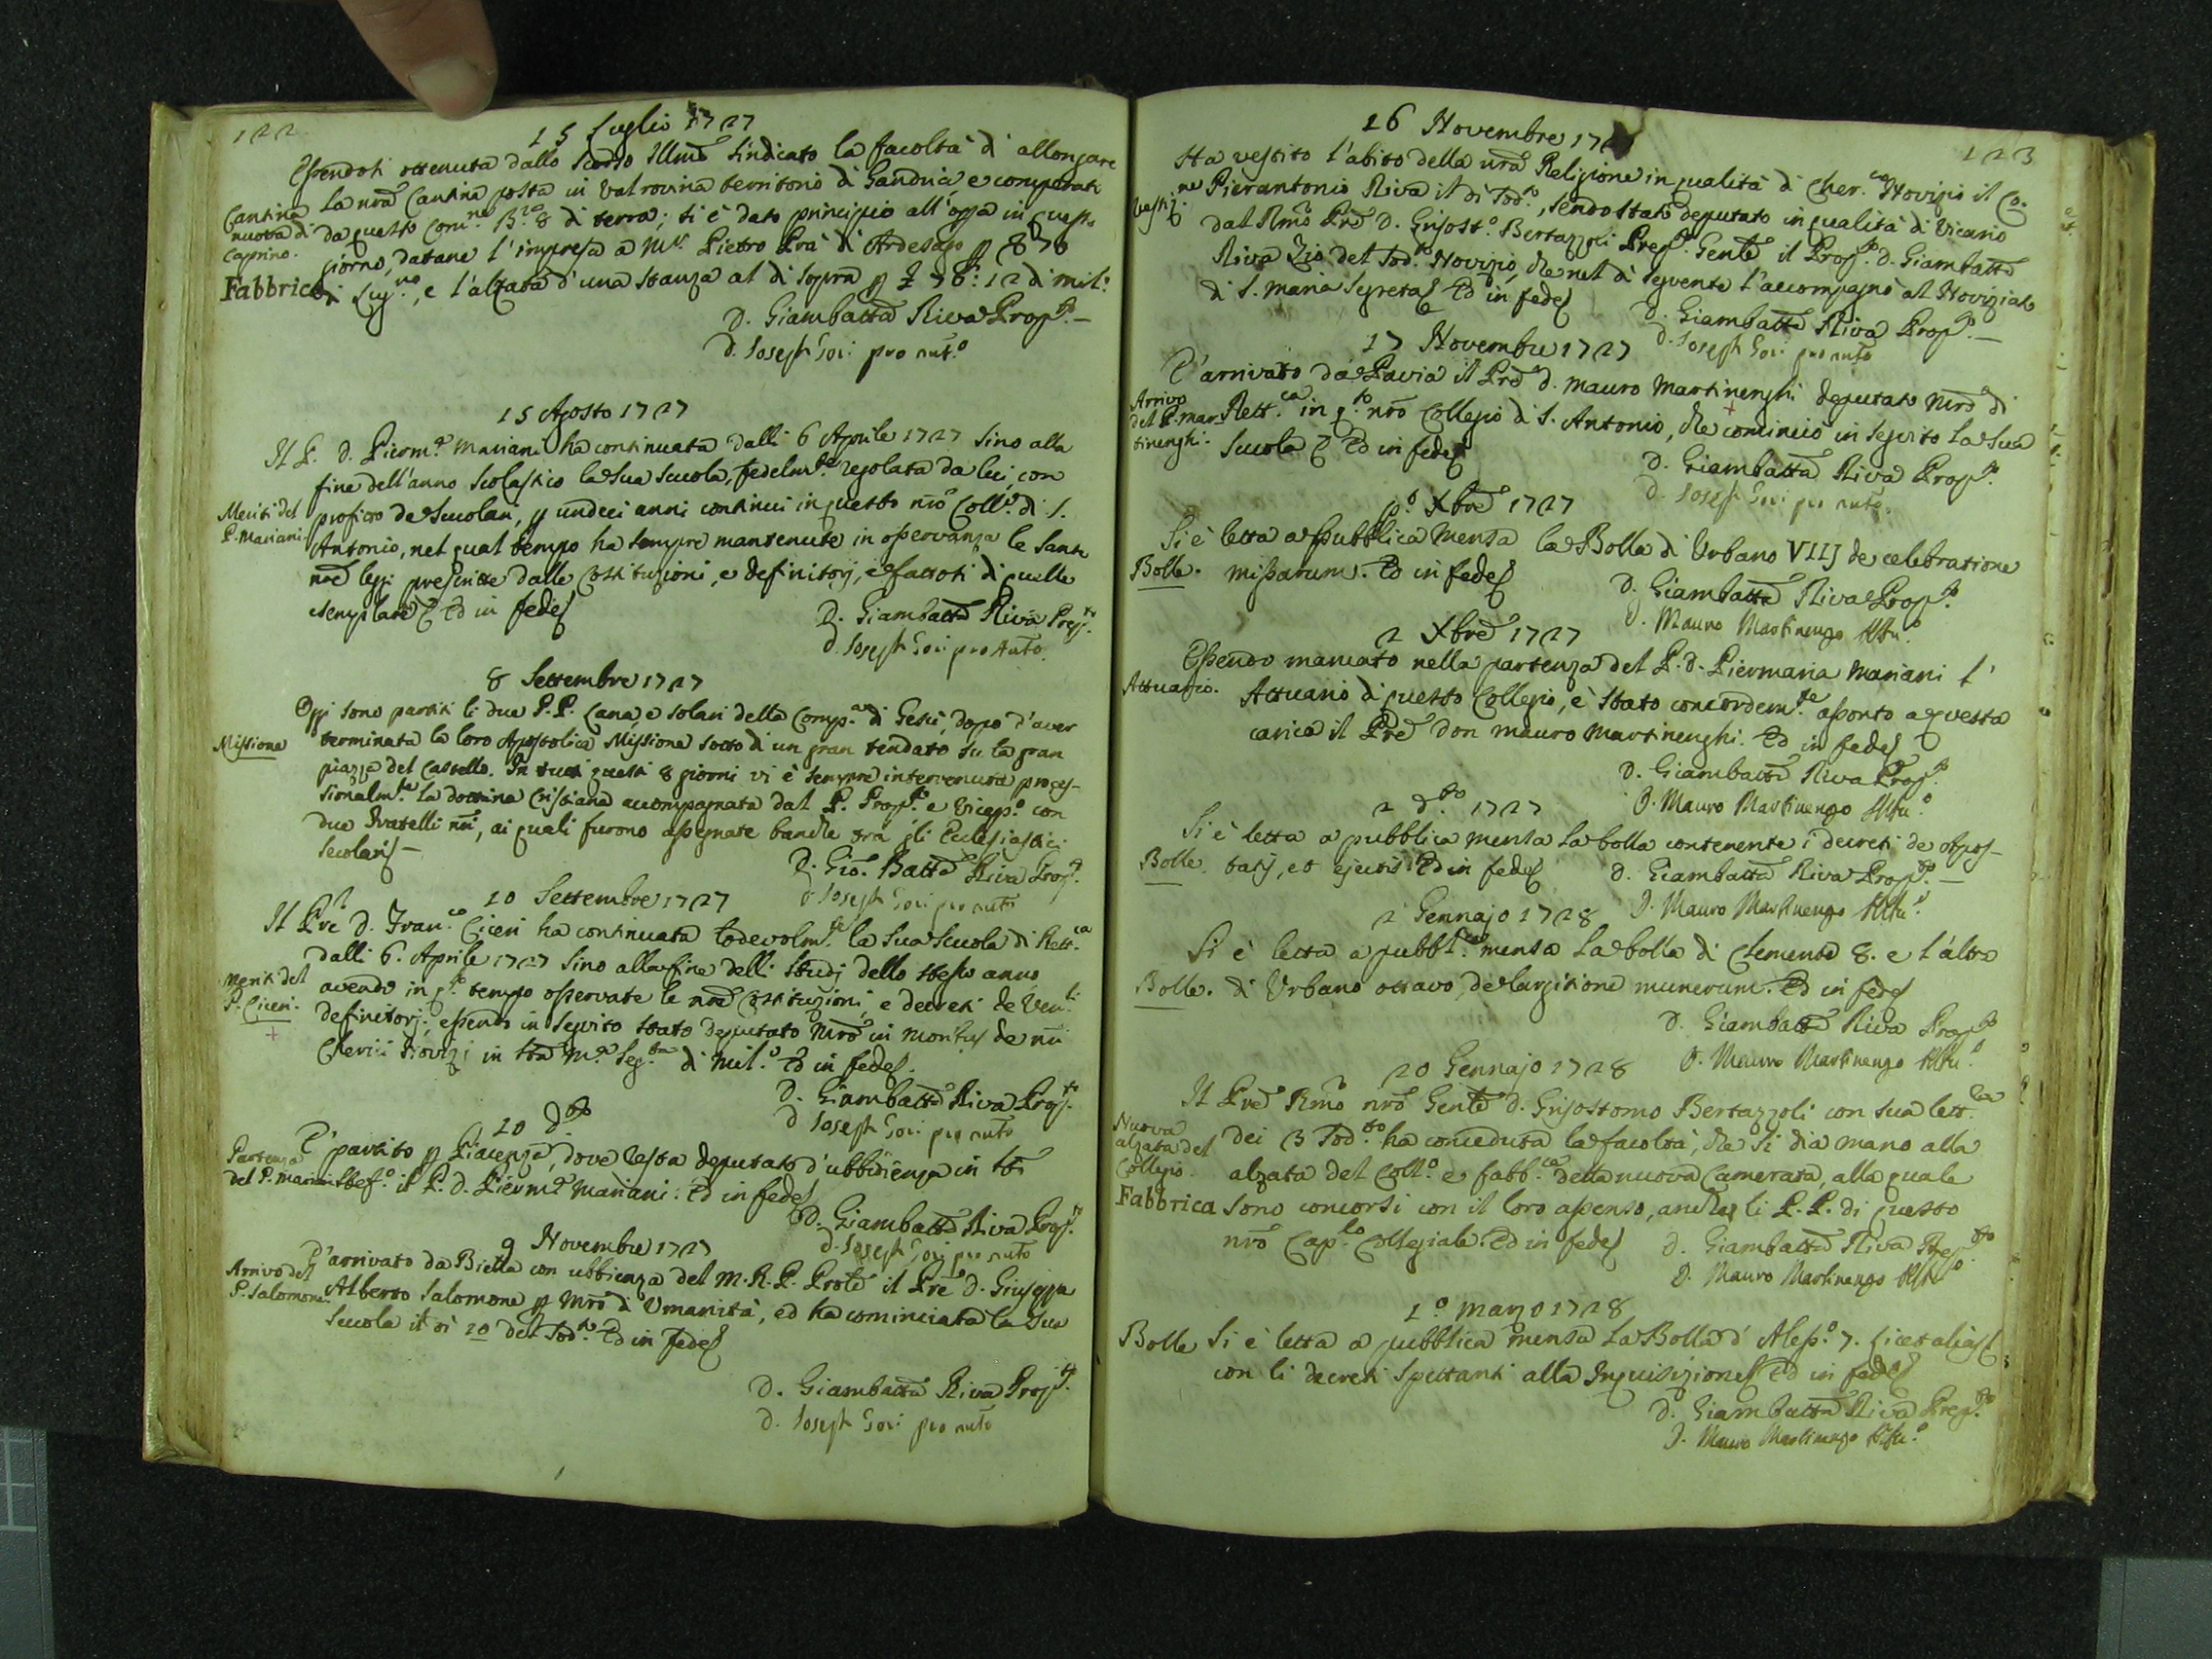 122
15 Luglio 1727
Essendosi ottenuta dallo scorso Illmo Sindicato la facoltà di allongare
Cantina la nra Cantina posta in Valrovina territorio di Gandria, e comperati
nuova di da questo Com.ne B.ia 8 di terra; si è dato principio all'opa in questo
Caprino. giorno, datane l'impresa a Mr. Pietro Prà di Ardesago p
Fabbrica di Lug.no, e l'alzata d'una stanza al di sopra p 12 di mil.o
D. Giambatta Riva Prop.to
D. Joseph Gori pro autto
15 Agosto 1727
Il P. D. Pierm.a Mariani ha continuata dalli 6 Aprile 1727 sino alla
fine dell'anno Scolastico la sua scuola, fedelm.te regolata da lui, con
Meriti del profitto de Scuolari, p undeci anni continui in questo nro Coll.o di S.
P. Mariani. Antonio, nel qual tempo ha sempre mantenute in osservanza le sante
nre leggi prescritte dalle Costituzioni, e definitorj, e fattosi di quelle
esemplare Ed in fede
D. Giambatta Riva Prep.to
D. Joseph Gori pro Autto.
8 Settembre 1727
Oggi sono partiti li due P.P. Cana, e Solari della Comp.a di Gesù, dopo d'aver
Missione terminata la loro Apostolica Missione sotto di un gran tendato su la gran
piazza del Castello. In tutti questi 8 giorni vi è sempre intervenuta proces-
sionalm.te la dottrina Cristiana accompagnata dal P. Prop.to e Vicep.o con
due fratelli nri, ai quali furono assegnate banche tra gli Ecclesiastici
secolari
D. Gio. Batta Riva Prop.to
D. Joseph Gori pro autto
10 Settembre 1727
Il Pre D. Fran.co Ciceri ha continuata lodevolm.te la sua scuola di Rett.ca
dalli 6. Aprile 1727 sino alla fine delli studj dello stesso anno
Meriti del avendo in q.to tempo osservate le nre Costituzioni, e decreti de Ven.li
P. Ciceri. definitorj, essendo in seguito stato deputato Mro in de nri
+ Cherici Novizj in Sta M.a Seg.ta di Mil.o Ed in fede.
D. Giambatta Riva Prop.to
D Joseph Gori pro autto
10 d.to
Partenza È partito p Piacenza, dove resta deputato d'ubbidienza in
del P. Mariani il P. D. Pierm.a Mariani. Ed in fede
D. Giambatta Riva Prop.to
D. Joseph Gori pro autto
9 Novembre 1727
Arrivo del È arrivato da Biella con ubbienza del M.R.P. Prole il Pre D. Giuseppe
P. Salomone. Alberto Salomone p Mro di Umanità, ed ha cominciata la sua
scuola il dì 10 del sod.to Ed in fede
D. Giambatta Riva Prop.to
D. Joseph Gori pro autto
123
16 Novembre 172
Ha vestito l'abito della nra Religione in qualità di Cher.co Novizio il Co.
Vestiz.ne Pierantonio Riva il dì sod.to, sendo stato deputato in qualità di Vicario
dal Rmo Pre D. Grisost.o Bertazzoli Prep.to Genle il Prop.to D. Giambatta
Riva Zio del sod.to Novizio, che nel dì seguente l'accompagnò al Noviziato
di S. Maria Segreta Ed in fede
D. Giambatta Riva Prop.to
D. Joseph Gori pro autto
17 Novembre 1727
È arrivato da Pavia il Pre D. Mauro Martinenghi deputato Mro di
Arrivo
del P. Mar- Rett.ca in q.to nro Collegio di S. Antonio, che cominciò in seguito la sua
tinenghi. scuola Ed in fede
D. Giambatta Riva Prop.to
D. Joseph Gori pro autto.
p.o Xbre 1727
Si è letta a pubblica mensa la Bolla di Urbano VIIJ de celebratione
Bolle. missarum. Ed in fede
D. Giambatta Riva Prop.to
D. Mauro Martinengo Attu.o
2 Xbre 1727
Essendo mancato nella partenza del P. D. Piermaria Mariani l'
Attuario. Attuario di questo Collegio, è stato concordem.te assonto a questa
carica il Pre Don Mauro Martinenghi. Ed in fede
D. Giambatta Riva Prop.to
D. Mauro Martinengo Attu.o
2 d.to 1727
Si è letta a pubblica mensa la bolla contenente i decreti de apos-
Bolle. tatis, et ejectis. Ed in fede
D. Giambatta Riva Prop.to
D. Mauro Martinengo Attu.o
2 Gennajo 1728
Si è letta a pubbl.ca mensa la bolla di Clemente 8. e l'altra
Bolle. di Urbano ottavo, de largitione munerum. Ed in fede
D. Giambatta Riva Prop.to
D. Mauro Martinengo Attu.o
20 Gennajo 1728
Il Pre Rmo nro Genle D. Grisostomo Bertazzoli con sua lett.ra
Nuova
alzata del dei 13 sod.to ha conceduta la facoltà, che si dia mano alla
Collegio. alzata del Coll.o e fabb.ca della nuova Camerata, alla quale
Fabbrica sono concorsi con il loro assenso, anche li P.P. di questo
nro Cap.lo Collegiale. Ed in fede
D. Giambatta Riva Prep.to
D. Mauro Martinengo Attu.o
1.o Marzo 1728
Bolle Si è letta a pubblica mensa la Bolla d'Aless.o 7. Licet alias
con li decreti spettanti alla Inquisizione Ed in fede
D. Giambatta Riva Prep.to
D. Mauro Martinengo Attu.o